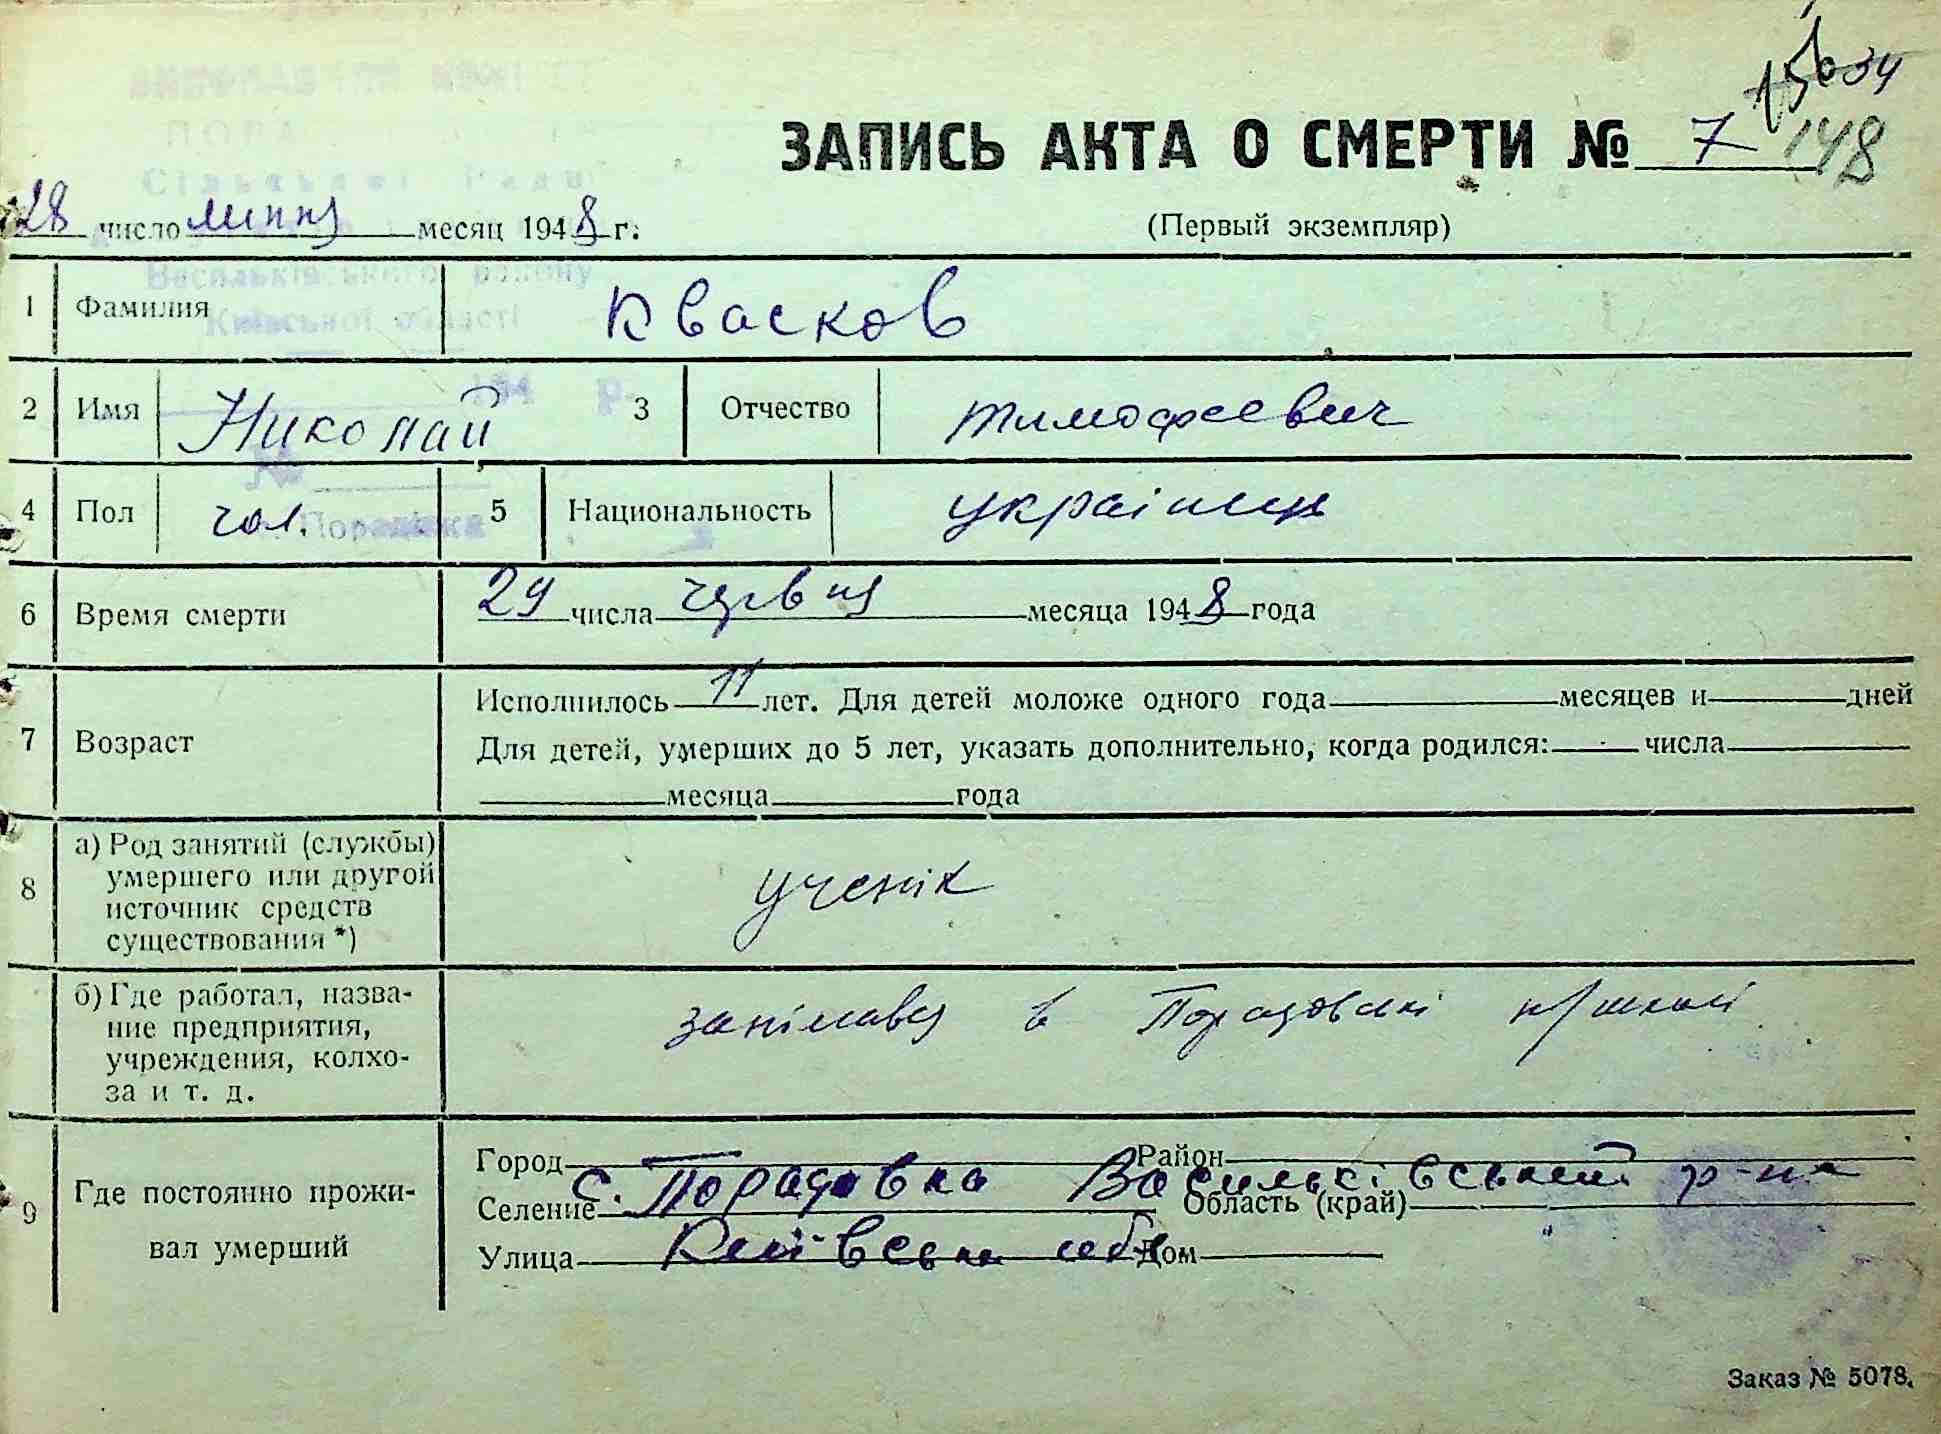 34
ЗАПИСЬ АКТА О СМЕРТИ № 7 148
28 число липня месяц 1948 г. (Первый экземпляр)
1 Фамилия Квасков
2 Имя Николай 3 Отчество тимофеевич
4 Пол чол. 5 Национальность українець
6 Время смерти 29 числа червня месяца 1948 года
7 Возраст Исполнилось 11 лет. Для детей моложе одного года месяцев и дней
Для детей, умерших до 5 лет, указать дополнительно, когда родился: числа
месяца года
8 а) Род занятий (службы) умершего или другой источник средств существования *) ученік
б) Где работал, назва-
ние предприятия,
учреждения, колхо-
за и т. д.
занімався в Порадовскі н/школі
9 Где постоянно прожи-
вал умерший
Город Район
Селение с. Порадовка Васильківський р-н Область (край)
Улица Київська обл. Дом
Порадівка
Сільської Ради
Васильківського району
Київської області
194 р.
№
Заказ № 5078.